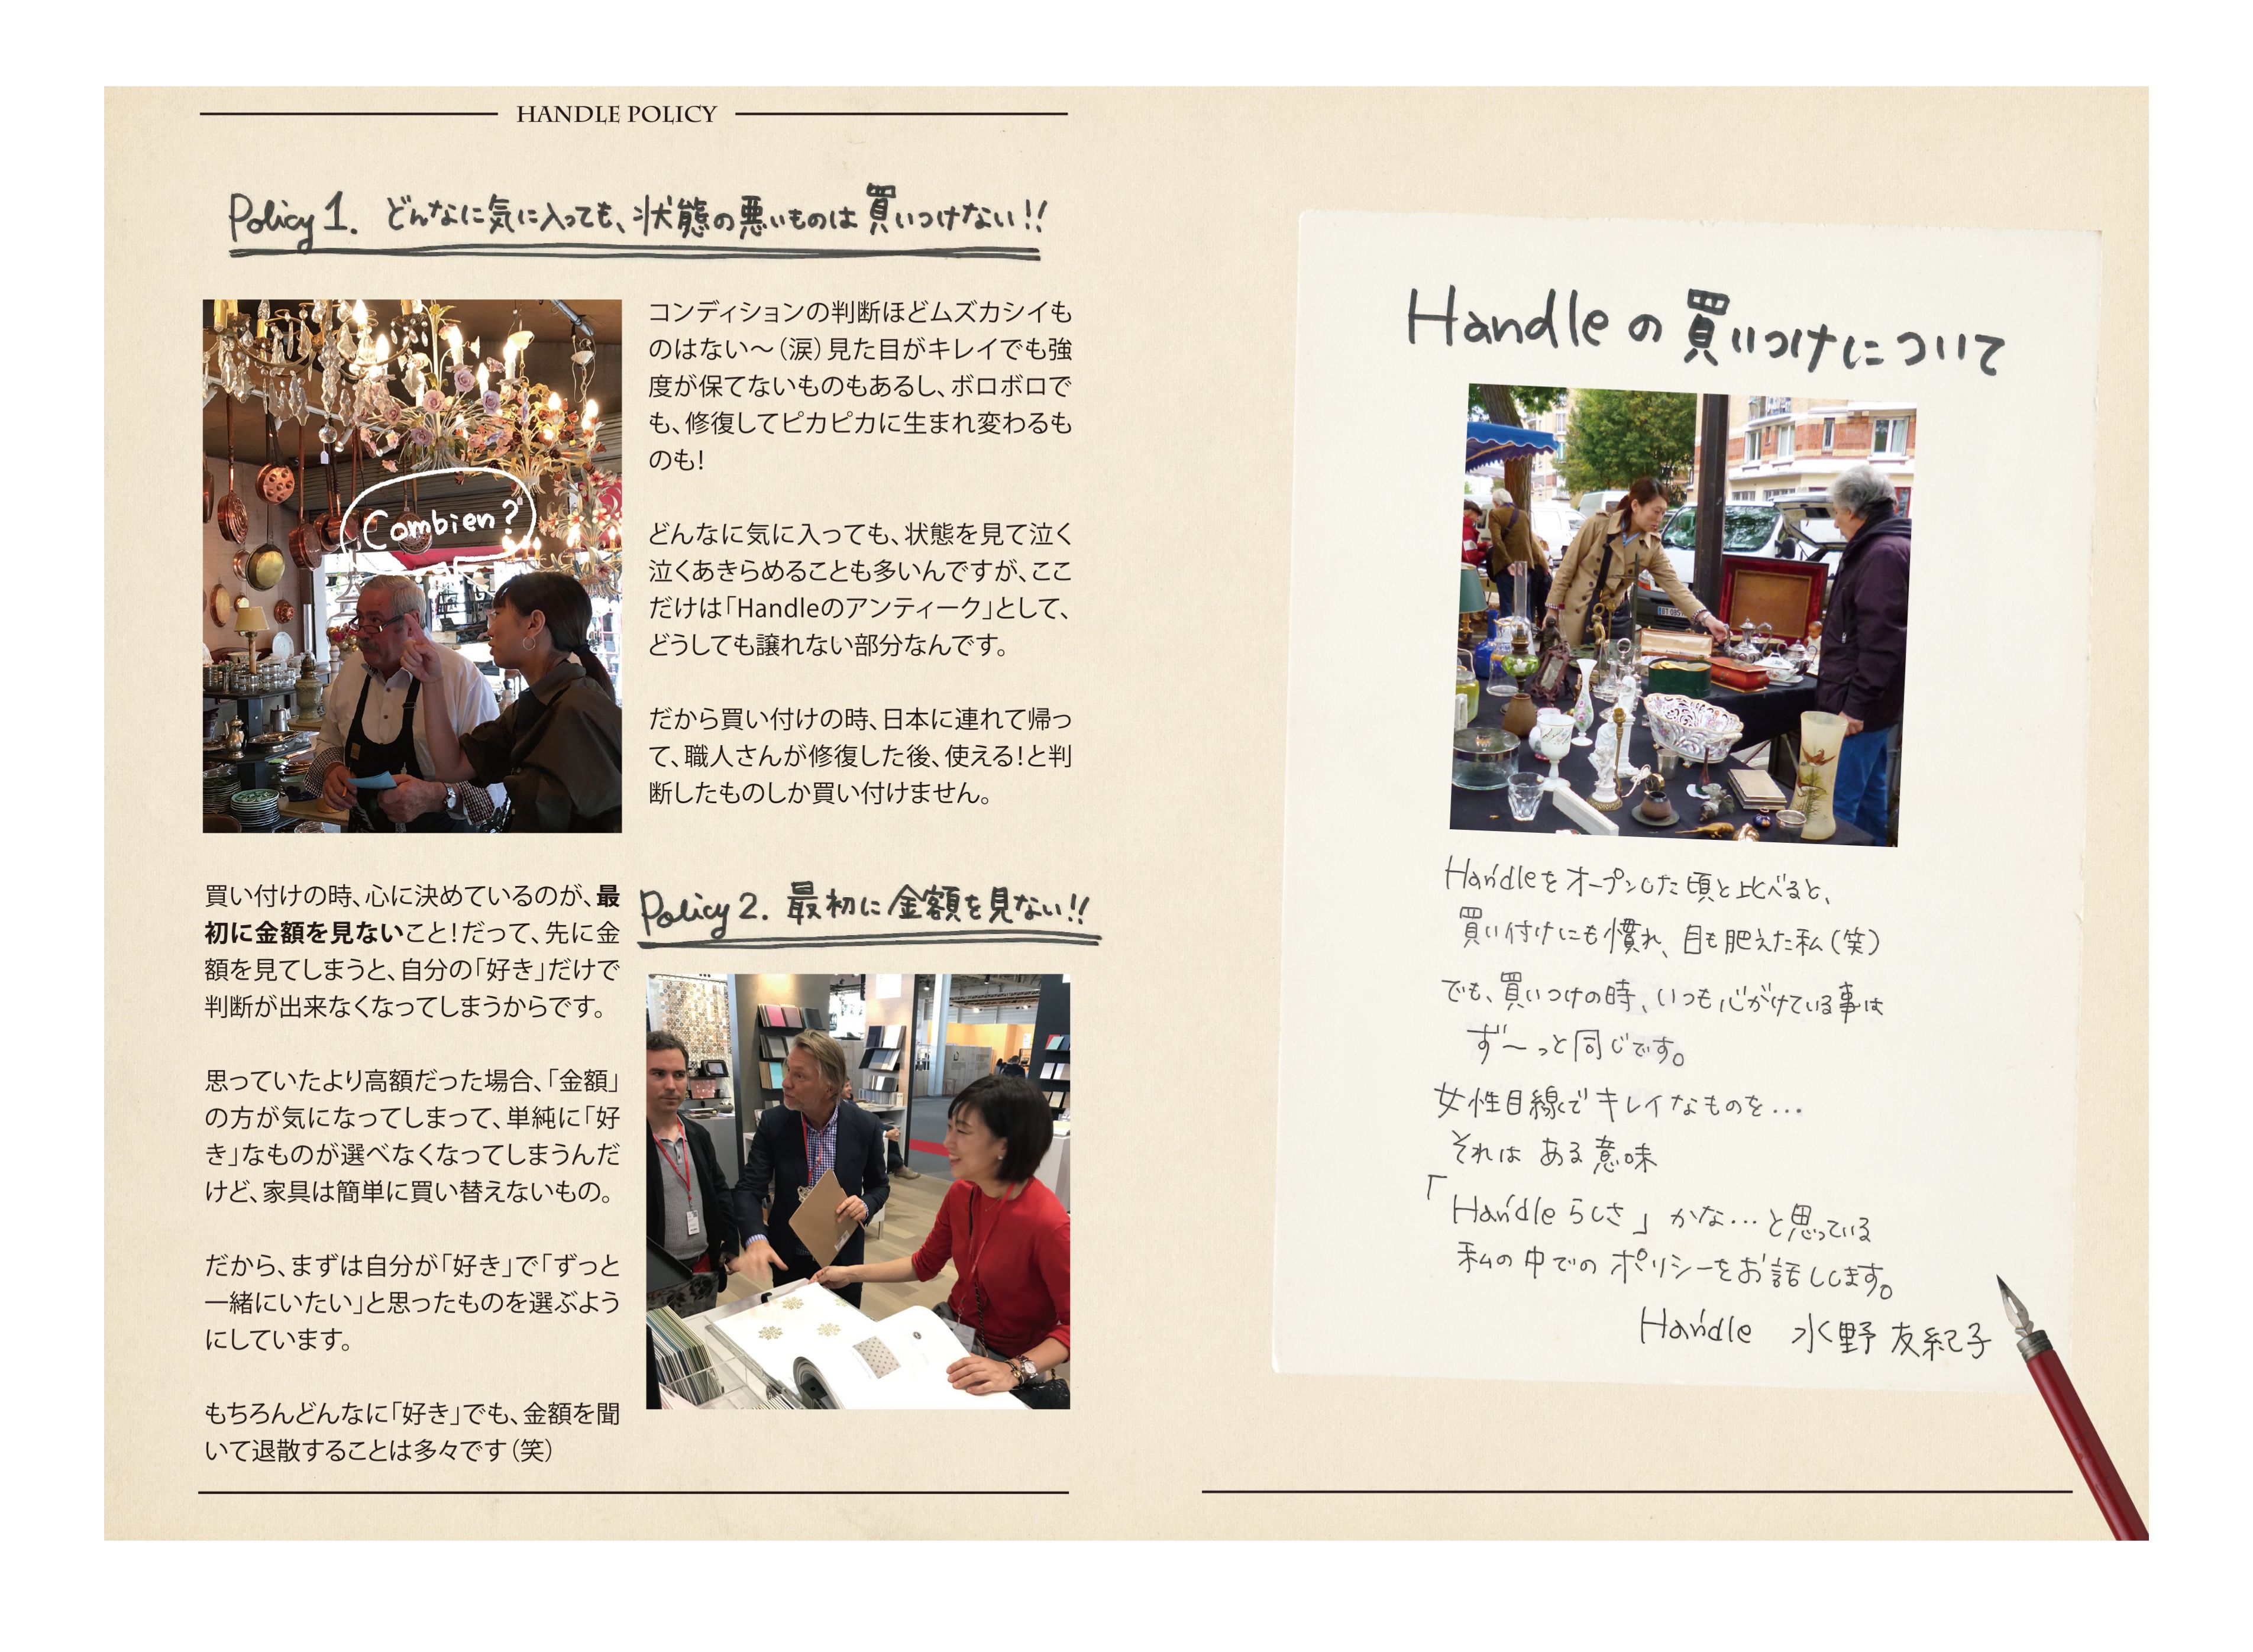 HANDLE POLICY
Policy 1. どんなに気に入っても、状態の悪いものは買いつけない!!
Combien?
コンディションの判断ほどムズカシイも
のはない〜（涙）見た目がキレイでも強
度が保てないものもあるし、ボロボロで
も、修復してピカピカに生まれ変わるも
のも！
どんなに気に入っても、状態を見て泣く
泣くあきらめることも多いんですが、ここ
だけは「Handleのアンティーク」として、
どうしても譲れない部分なんです。
だから買い付けの時、日本に連れて帰っ
て、職人さんが修復した後、使える！と判
断したものしか買い付けません。
Policy 2. 最初に金額を見ない!!
買い付けの時、心に決めているのが、最
初に金額を見ないこと！だって、先に金
額を見てしまうと、自分の「好き」だけで
判断が出来なくなってしまうからです。
思っていたより高額だった場合、「金額」
の方が気になってしまって、単純に「好
き」なものが選べなくなってしまうんだ
けど、家具は簡単に買い替えないもの。
だから、まずは自分が「好き」で「ずっと
一緒にいたい」と思ったものを選ぶよう
にしています。
もちろんどんなに「好き」でも、金額を聞
いて退散することは多々です（笑）
Handleの買いつけについて
Handleをオープンした頃と比べると、
買い付けにも慣れ、目も肥えた私（笑）
でも、買いつけの時、いつも心がけている事は
ず〜っと同じです。
女性目線でキレイなものを…
それは ある意味
「Handleらしさ」かな…と思っている
私の中でのポリシーをお話しします。
Handle 水野 友紀子